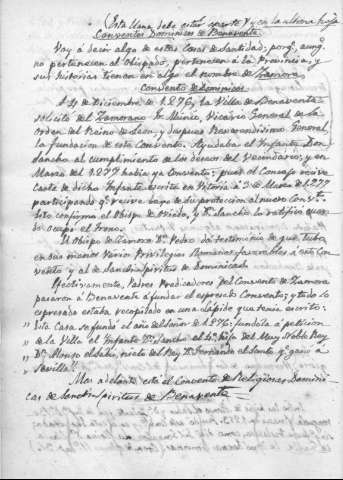 (Esta llana debe estar aparte y en la ultima hoja
Conventos Dominicos de Benavente
Voy á decir algo de estas Casas de Santidad; porq.e aunq.e no
pertenecen al Obispado, pertenecen á la Provincia, y
sus historias tienen en algo el nombre de Zamora.
Convento de Dominicos
A 4 de Diciembre de 1.276, la Villa de Benavente
solicitó del Zamorano Fr. Munio, Vicario General de la
orden del Reino de Leon, y despues Reverendisimo General,
la fundacion de este Convento. Ayudaba el Infante Don
Sancho al cumplimiento de los deseos del Vecindario; y en
Marzo del 1.277 habia ya Convento; pues el Concejo recive
Carta de dicho Infante escrita en Vitoria á 3 de Marzo de 1.277
participando q.e recive bajo de su proteccion al nuevo Conv.to
Esto confirma el Obispo de Oviedo, y D.n Sancho lo ratificó cuando
ocupó el Trono.
El Obispo de Zamora D.n Pedro dá testimonio de que tubo
en sus manos varios Privilegios Romanos favorables á este Con-
vento y al de Sancti Spiritus de Dominicas.
Efectivamente, Padres Predicadores del Convento de Zamora
pasaron á Benavente á fundar el espresado Convento; y todo lo
espresado estaba recopilado en una Lápida que tenia escrito:
" Esta Casa se fundó el año del Señor de 1.276: fundóla á peticion
" de la Villa el Infante D.n Sancho el 4.º hijo del Muy Noble Rey
" D.n Alonso el Sabio, nieto del Rey D.n Fernando el Santo q.e ganó á
" Sevilla"
Mas adelante está el Convento de Religiosas Domini-
cas de Sancti Spiritus de Benavente